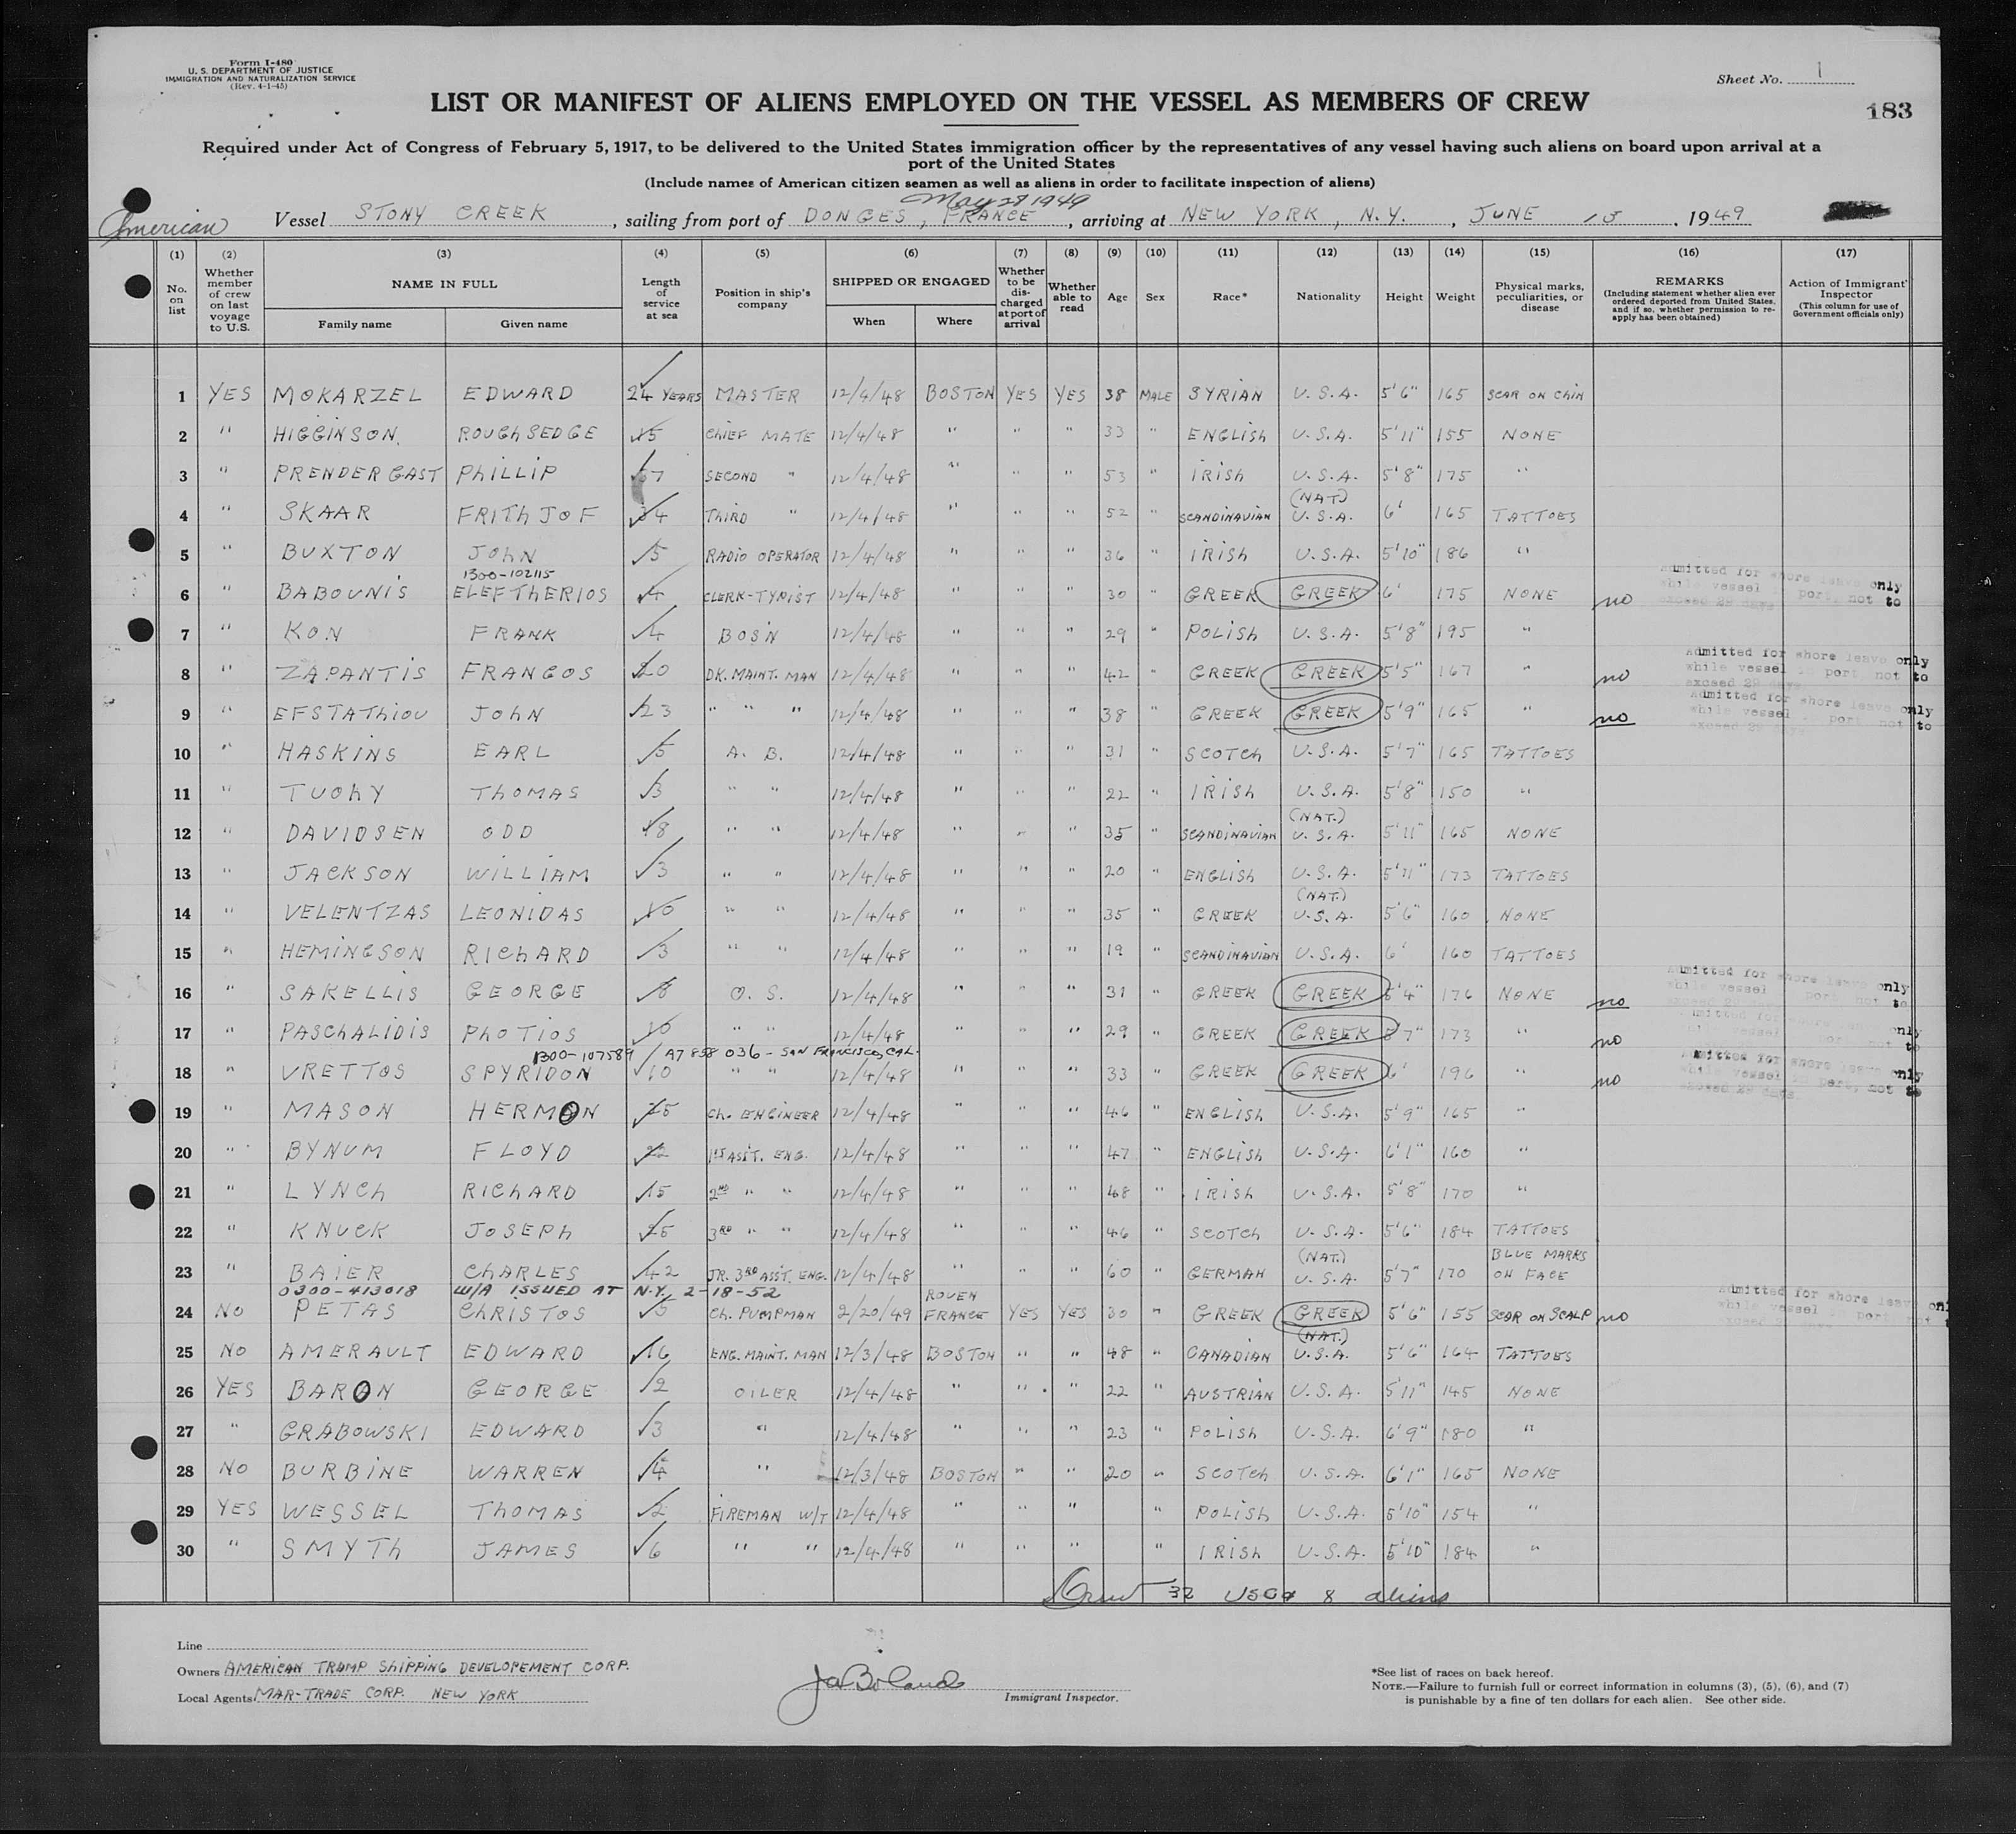 Form I-480
U. S. DEPARTMENT OF JUSTICE
IMMIGRATION AND NATURALIZATION SERVICE
(Rev. 4-1-45)
Sheet No. 1
LIST OR MANIFEST OF ALIENS EMPLOYED ON THE VESSEL AS MEMBERS OF CREW
183
Required under Act of Congress of February 5, 1917, to be delivered to the United States immigration officer by the representatives of any vessel having such aliens on board upon arrival at a
port of the United States
(Include names of American citizen seamen as well as aliens in order to facilitate inspection of aliens)
May 28 1949
American Vessel STONY CREEK, sailing from port of DONGES, FRANCE, arriving at NEW YORK, N.Y., JUNE 13, 1949
(1) (2) (3) (4) (5) (6) (7) (8) (9) (10) (11) (12) (13) (14) (15) (16) (17)
No. on list
Whether member of crew on last voyage to U.S.
NAME IN FULL
Family name Given name
Length of service at sea
Position in ship's company
SHIPPED OR ENGAGED
When Where
Whether to be discharged at port of arrival
Whether able to read
Age Sex Race* Nationality Height Weight
Physical marks, peculiarities, or disease
REMARKS
(Including statement whether alien ever ordered deported from United States, and if so, whether permission to re-apply has been obtained)
Action of Immigrant Inspector
(This column for use of Government officials only)
1 YES MOKARZEL EDWARD 24 YEARS MASTER 12/4/48 BOSTON YES YES 38 MALE SYRIAN U.S.A. 5'6" 165 SCAR ON CHIN
2 " HIGGINSON ROUGHSEDGE 15 CHIEF MATE 12/4/48 " " " 33 " ENGLISH U.S.A. 5'11" 155 NONE
3 " PRENDERGAST PHILLIP 7 SECOND " 12/4/48 " " " 53 " IRISH U.S.A. 5'8" 175 "
4 " SKAAR FRITHJOF 34 THIRD " 12/4/48 " " " 52 " SCANDINAVIAN (NAT) U.S.A. 6' 165 TATTOES
5 " BUXTON JOHN 5 RADIO OPERATOR 12/4/48 " " " 36 " IRISH U.S.A. 5'10" 186 "
1300-102115
6 " BABOUNIS ELEFTHERIOS 4 CLERK-TYPIST 12/4/48 " " " 30 " GREEK GREEK 6' 175 NONE no Admitted for shore leave only while vessel in port, not to exceed 29 days
7 " KON FRANK 4 BOSN 12/4/48 " " " 29 " POLISH U.S.A. 5'8" 195 "
8 " ZAPANTIS FRANGOS 20 DK. MAINT. MAN 12/4/48 " " " 42 " GREEK GREEK 5'5" 167 " no Admitted for shore leave only while vessel in port not to exceed 29 days
9 " EFSTATHIOU JOHN 23 " " " 12/4/48 " " " 38 " GREEK GREEK 5'9" 165 " no Admitted for shore leave only while vessel in port, not to exceed 29 days
10 " HASKINS EARL 5 A. B. 12/4/48 " " " 31 " SCOTCH U.S.A. 5'7" 165 TATTOES
11 " TUOHY THOMAS 3 " " 12/4/48 " " " 22 " IRISH U.S.A. 5'8" 150 "
12 " DAVIDSEN ODD 8 " " 12/4/48 " " " 35 " SCANDINAVIAN (NAT.) U.S.A. 5'11" 165 NONE
13 " JACKSON WILLIAM 3 " " 12/4/48 " " " 20 " ENGLISH U.S.A. 5'11" 173 TATTOES
14 " VELENTZAS LEONIDAS 10 " " 12/4/48 " " " 35 " GREEK (NAT.) U.S.A. 5'6" 160 NONE
15 " HEMINGSON RICHARD 3 " " 12/4/48 " " " 19 " SCANDINAVIAN U.S.A. 6' 160 TATTOES
16 " SAKELLIS GEORGE 8 O. S. 12/4/48 " " " 31 " GREEK GREEK 5'4" 176 NONE no Admitted for shore leave only while vessel in port not to
17 " PASCHALIDIS PHOTIOS 10 " " 12/4/48 " " " 29 " GREEK GREEK 5'7" 173 " no
1300-107589 / A7 858 036 - SAN FRANCISCO, CAL.
18 " VRETTOS SPYRIDON 10 " " 12/4/48 " " " 33 " GREEK GREEK 6' 196 " no Admitted for shore leave only while vessel in port, not to exceed 29 days
19 " MASON HERMON 25 CH. ENGINEER 12/4/48 " " " 46 " ENGLISH U.S.A. 5'9" 165 "
20 " BYNUM FLOYD 22 1ST ASS'T. ENG. 12/4/48 " " " 47 " ENGLISH U.S.A. 6'1" 160 "
21 " LYNCH RICHARD 15 2ND " " 12/4/48 " " " 48 " IRISH U.S.A. 5'8" 170 "
22 " KNUCK JOSEPH 25 3RD " " 12/4/48 " " " 46 " SCOTCH U.S.A. 5'6" 184 TATTOES
23 " BAIER CHARLES 42 JR. 3RD ASS'T. ENG. 12/4/48 " " " 60 " GERMAN (NAT.) U.S.A. 5'7" 170 BLUE MARKS ON FACE
0300-413018 W/A ISSUED AT N.Y. 2-18-52
24 NO PETAS CHRISTOS 5 CH. PUMPMAN 2/20/49 ROUEN FRANCE YES YES 30 " GREEK GREEK 5'6" 155 SCAR ON SCALP no Admitted for shore leave only while vessel in port not
25 NO AMERAULT EDWARD 16 ENG. MAINT. MAN 12/3/48 BOSTON " " 48 " CANADIAN (NAT.) U.S.A. 5'6" 164 TATTOES
26 YES BARON GEORGE 2 OILER 12/4/48 " " " 22 " AUSTRIAN U.S.A. 5'11" 145 NONE
27 " GRABOWSKI EDWARD 3 " 12/4/48 " " " 23 " POLISH U.S.A. 6'9" 180 "
28 NO BURBINE WARREN 4 " 12/3/48 BOSTON " " 20 " SCOTCH U.S.A. 6'1" 165 NONE
29 YES WESSEL THOMAS 2 FIREMAN W/T 12/4/48 " " " " POLISH U.S.A. 5'10" 154 "
30 " SMYTH JAMES 6 " " 12/4/48 " " " " IRISH U.S.A. 5'10" 184 "
32 USC 8 aliens
Line
Owners AMERICAN TRAMP SHIPPING DEVELOPEMENT CORP.
Local Agents MAR-TRADE CORP. NEW YORK
Immigrant Inspector.
*See list of races on back hereof.
NOTE.—Failure to furnish full or correct information in columns (3), (5), (6), and (7)
is punishable by a fine of ten dollars for each alien. See other side.